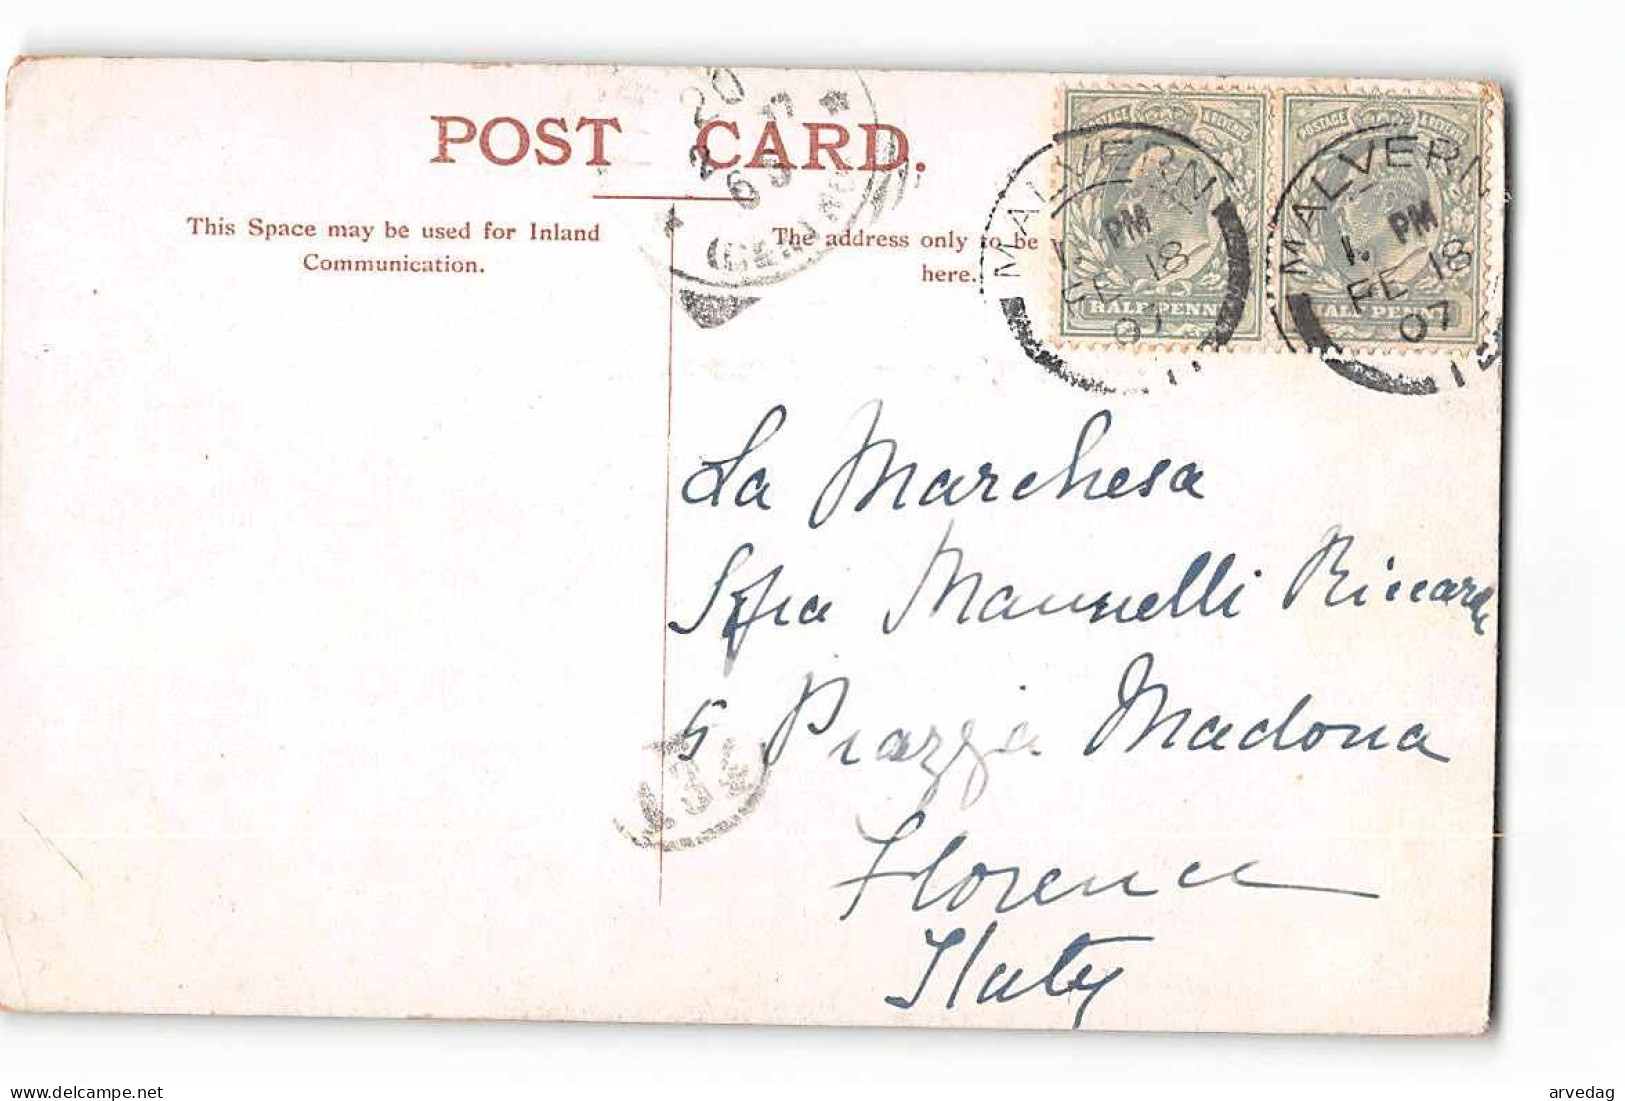 POST CARD.
This Space may be used for Inland
Communication.
The address only to be
here.
POSTAGE & REVENUE
HALF PENNY
POSTAGE & REVENUE
HALF PENNY
MALVERN
1. PM
FE 18
07
MALVERN
1. PM
FE 18
07
20
2
La Marchesa
Mannelli Riccardi
5 Piazza Madona
Florence
Italy
134
delcampe.net
arvedag